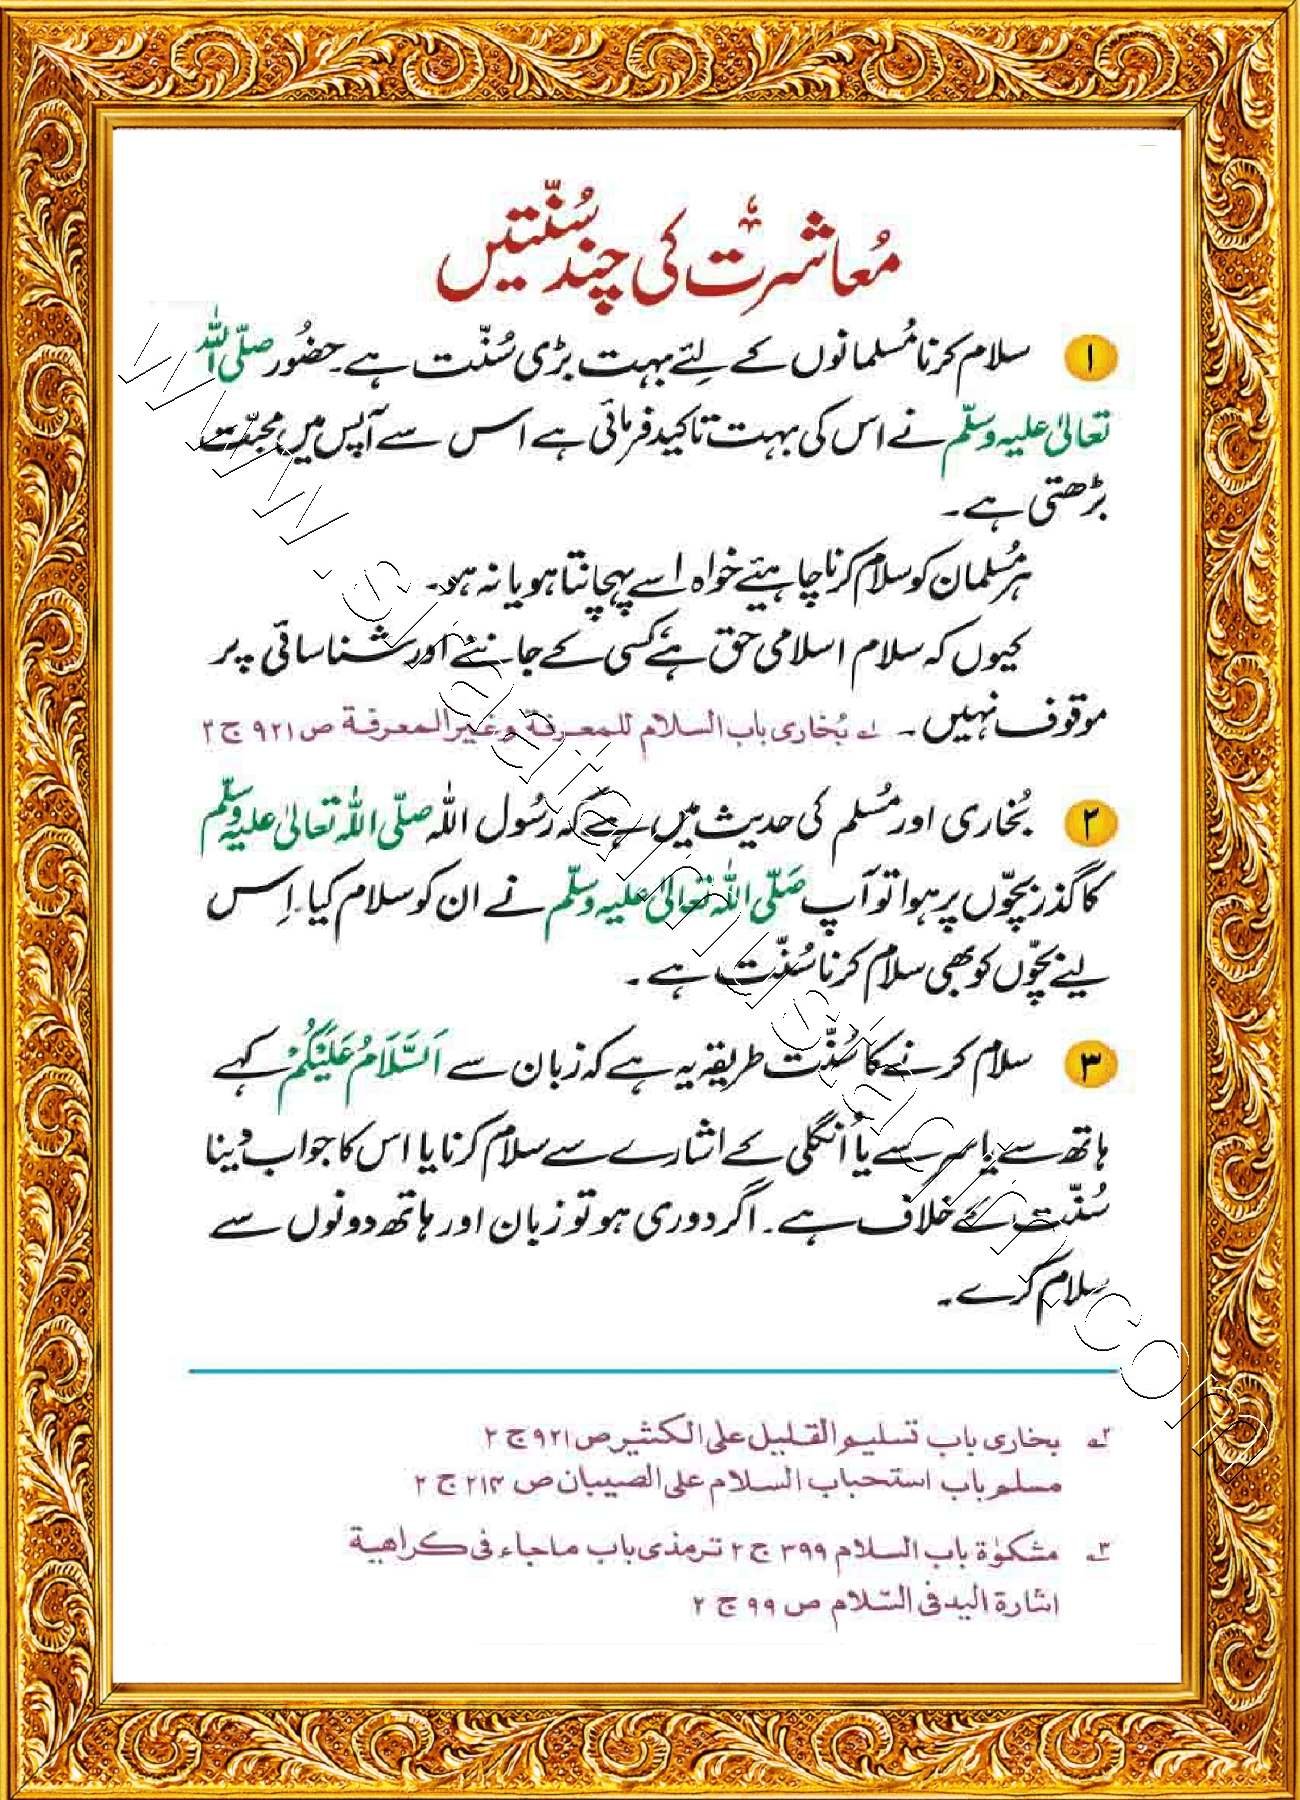 معاشرت کی چند سُنّتیں
۱ سلام کرنا مُسلمانوں کے لِئے بہت بڑی سُنّت ہے۔ حضُور صلّی اللہ
تعالیٰ علیہ وسلّم نے اس کی بہت تاکید فرمائی ہے اس سے آپس میں محبّت
بڑھتی ہے۔
ہر مُسلمان کو سلام کرنا چاہیئے خواہ اسے پہچانتا ہو یا نہ ہو۔
کیوں کہ سلام اسلامی حق ہے کسی کے جاننے اور شناسائی پر
موقوف نہیں۔ ۱ بُخاری باب السلام للمعرفة وغیر المعرفة ص ۹۲۱ ج ۲
۲ بُخاری اور مُسلم کی حدیث میں ہے کہ رسُول اللہ صلّی اللہ تعالیٰ علیہ وسلّم
کا گذر بچّوں پر ہوا تو آپ صَلّی اللہ تعالیٰ علیہ وسلّم نے ان کو سلام کیا۔ اِس
لیئے بچّوں کو بھی سلام کرنا سُنّت ہے۔
۳ سلام کرنے کا سُنّت طریقہ یہ ہے کہ زبان سے اَلسَّلَامُ عَلَيْكُمْ کہے
ہاتھ سے یا سر سے یا اُنگلی کے اشارے سے سلام کرنا یا اس کا جواب دینا
سُنّت کے خلاف ہے۔ اگر دوری ہو تو زبان اور ہاتھ دونوں سے
سلام کرے۔
۲ بخاری باب تسلیم القلیل علی الکثیر ص ۹۲۱ ج ۲
مسلم باب استحباب السلام علی الصیبان ص ۲۱۴ ج ۲
۳ مشکوٰة باب السلام ۳۹۹ ج ۲ ترمذی باب ماجاء فی کراهیة
اشارة الید فی السّلام ص ۹۹ ج ۲